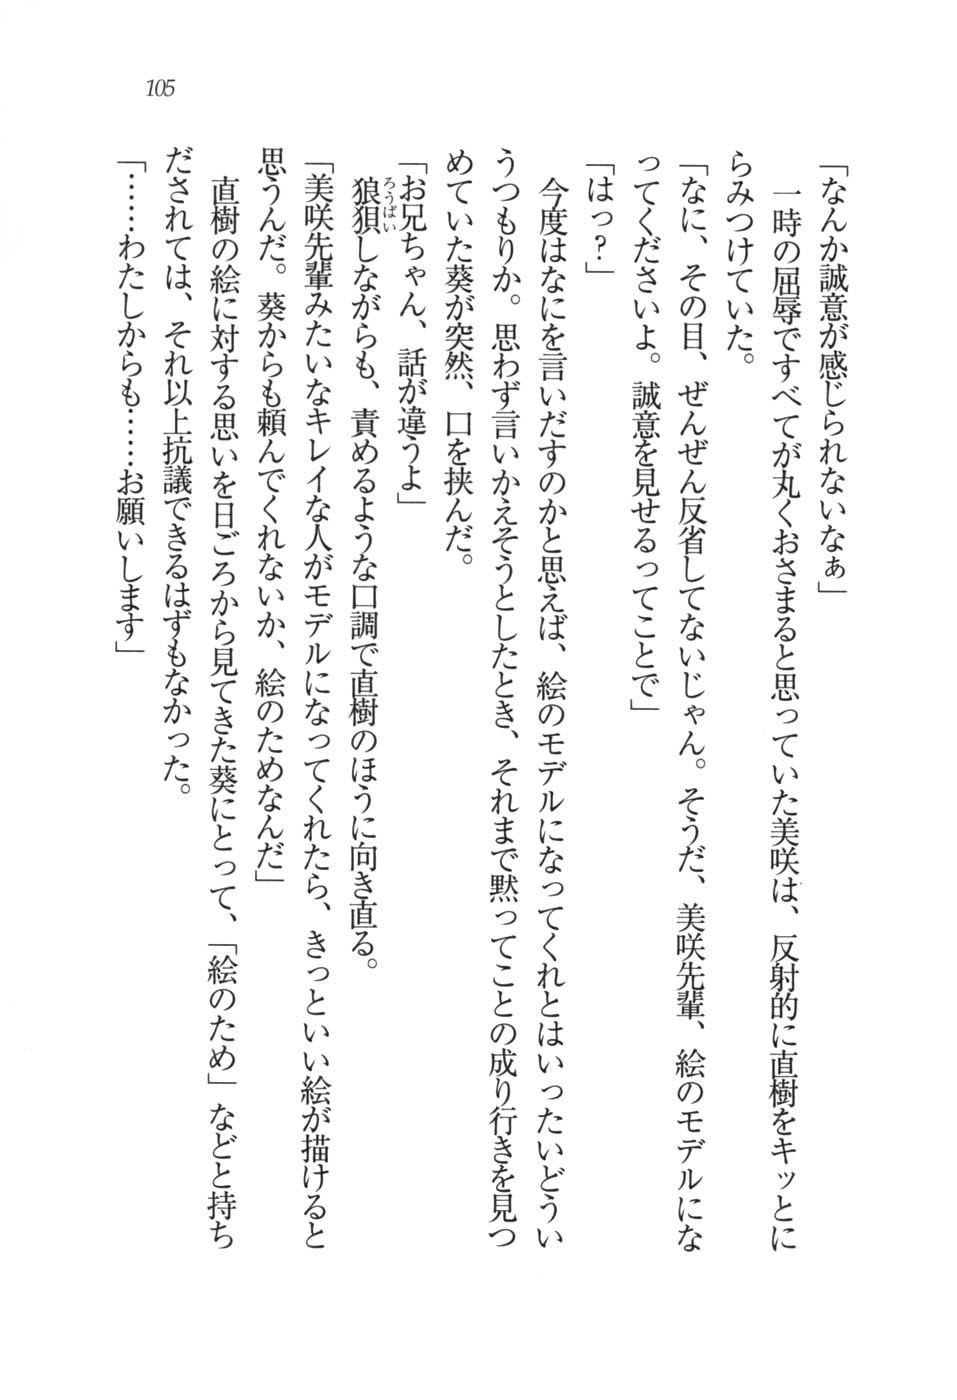 105
「なんか誠意が感じられないなぁ」
　一時の屈辱ですべてが丸くおさまると思っていた美咲は、反射的に直樹をキッとに
らみつけていた。
「なに、その目、ぜんぜん反省してないじゃん。そうだ、美咲先輩、絵のモデルにな
ってくださいよ。誠意を見せるってことで」
「はっ？」
　今度はなにを言いだすのかと思えば、絵のモデルになってくれとはいったいどうい
うつもりか。思わず言いかえそうとしたとき、それまで黙ってことの成り行きを見つ
めていた葵が突然、口を挟んだ。
「お兄ちゃん、話が違うよ」
　狼狽しながらも、責めるような口調で直樹のほうに向き直る。
ろうばい
「美咲先輩みたいなキレイな人がモデルになってくれたら、きっといい絵が描けると
思うんだ。葵からも頼んでくれないか、絵のためなんだ」
　直樹の絵に対する思いを日ごろから見てきた葵にとって、「絵のため」などと持ち
だされては、それ以上抗議できるはずもなかった。
「……わたしからも……お願いします」